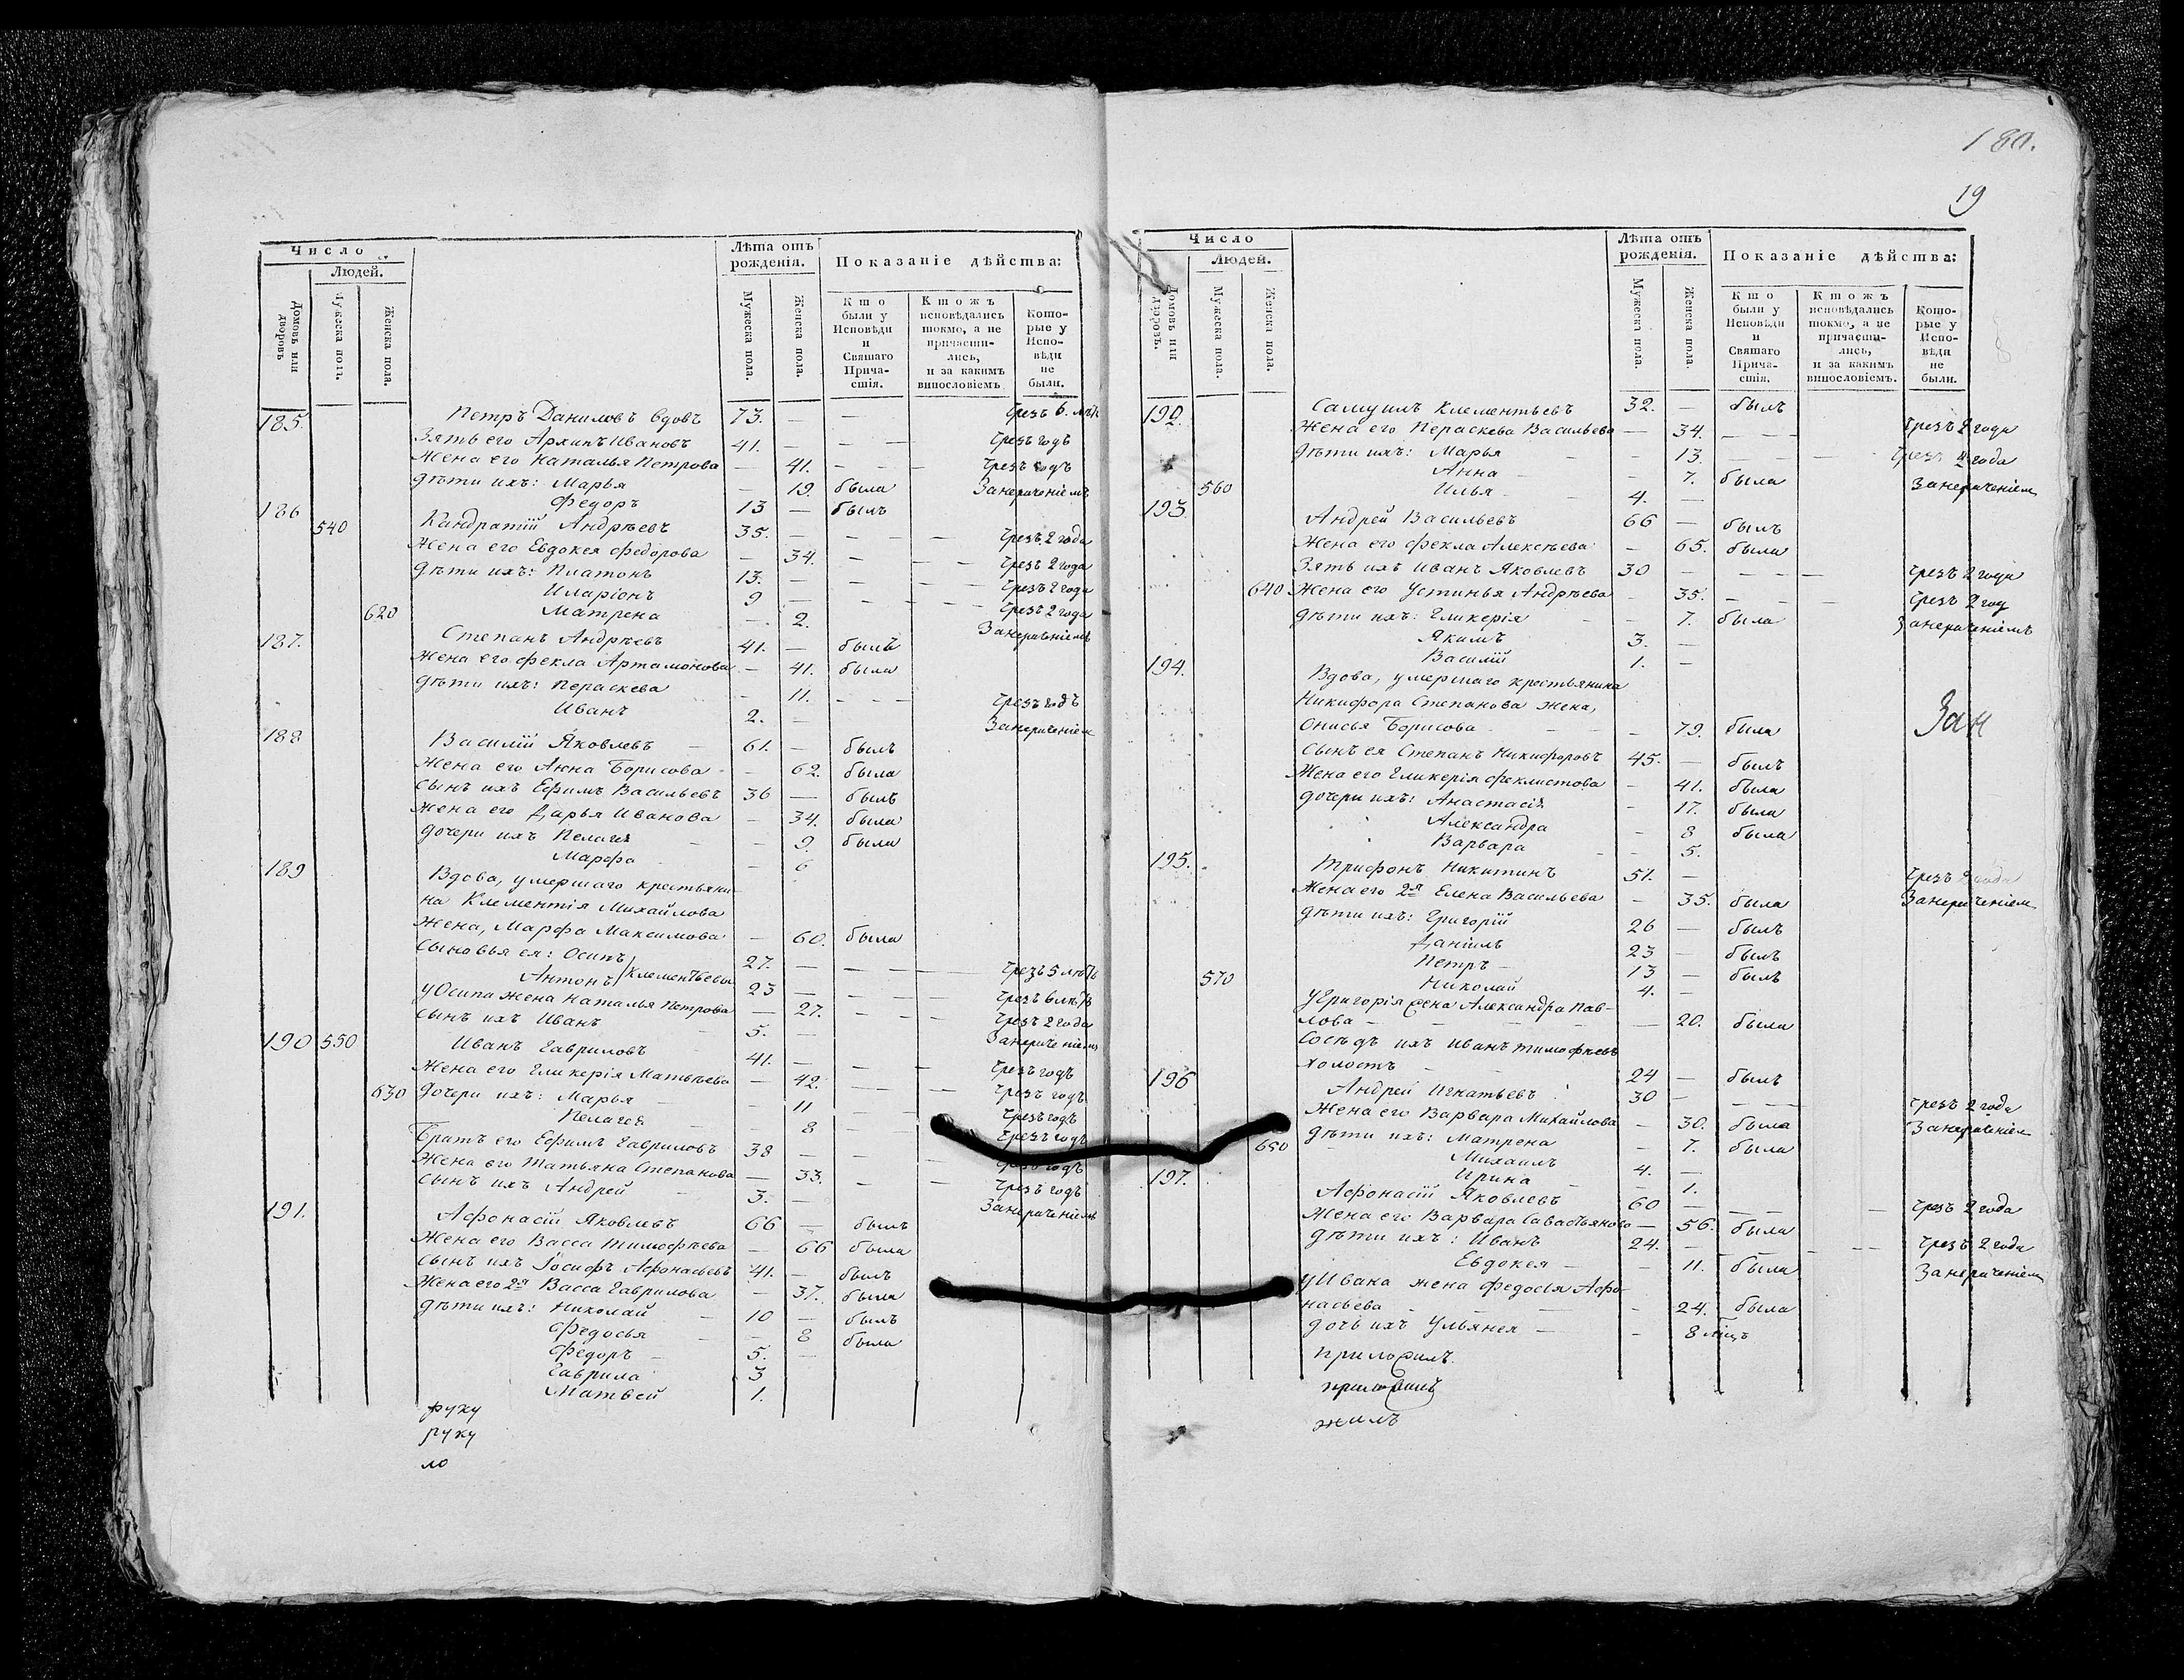 180.
19
Число
Людей.
Домовъ или дворовъ
Мужеска пола.
Женска пола.
Лѣта отъ рожденія.
Мужеска пола.
Женска пола.
Показаніе дѣйства:
Кто были у Исповѣди и Святаго Прича-стія.
Ктожъ исповѣдались токмо, а не причасти-лись, и за какимъ винословіемъ
Кото-рые у Испо-вѣди не были.
185. Петръ Даниловъ вдовъ 73. — — Чрезъ 6. лѣтъ
Зять его Архипъ Ивановъ 41. — — — Чрезъ годъ
Жена его Наталья Петрова — 41. — — Чрезъ годъ
Дѣти ихъ: Марья — 19. была
Федоръ 13 — былъ
186 540 Кандратій Андрѣевъ 35. — — — Чрезъ 2 года
Жена его Евдокея Федорова — 34. — — Чрезъ 2 года
Дѣти ихъ: Платонъ 13. — — — Чрезъ 2 года
Иларіонъ 9 — — — Чрезъ 2 года
620 Матрена — 2.
187. Степанъ Андрѣевъ 41. — былъ
Жена его Фекла Артамонова — 41. была
Дѣти ихъ: Пераскева — 11. — — Чрезъ годъ
Иванъ 2. —
188 Василій Яковлевъ — 61. — былъ
Жена его Анна Борисова — 62. была
Сынъ ихъ Ефимъ Васильевъ 36 — былъ
Жена его Дарья Иванова — 34. была
Дочери ихъ Пелагея — 9. была
Марфа — 6
189 Вдова, умершаго крестьяни-
на Клементія Михайлова
Жена, Марфа Максимова — 60. была
Сыновья ея: Осипъ 27. — — — Чрезъ 5 лѣтъ
Антонъ Клементьевы 23 — — — Чрезъ 6 лѣтъ
У Осипа жена Наталья Петрова — 27. — — Чрезъ 2 года
Сынъ ихъ Иванъ 5. —
190 550 Иванъ Гавриловъ 41. — — — Чрезъ годъ
Жена его Гликерія Матвѣева — 42. — — Чрезъ годъ
630 Дочери ихъ: Марья — 11 — Чрезъ годъ
Пелагея — 8 — — Чрезъ годъ
Братъ его Ефимъ Гавриловъ 38 — — — Чрезъ годъ
Жена его Татьяна Степанова — 33. — — Чрезъ годъ
Сынъ ихъ Андрей 3. —
191. Афонасій Яковлевъ 66 — былъ
Жена его Васса Тимофѣева — 66 была
Сынъ ихъ Іосифъ Афонасьевъ 41. — былъ
Жена его 2я Васса Гаврилова — 37. была
Дѣти ихъ: Николай — 10 — былъ
Федосья — 8 была
Федоръ — 5. —
Гаврила 3
Матвей 1.
руку
руку
ло
Число
Людей.
Домовъ или дворовъ.
Мужеска пола.
Женска пола.
Лѣта отъ рожденія.
Мужеска пола.
Женска пола.
Показаніе дѣйства:
Кто были у Исповѣди и Святаго Прича-стія.
Ктожъ исповѣдались токмо, а не причасти-лись, и за какимъ винословіемъ.
Кото-рые у Испо-вѣди не были.
192. Самуилъ Клементьевъ 32. — былъ
Жена его Пераскева Васильева — 34. — — Чрезъ 2 года
Дѣти ихъ: Марья — 13. — — года
Анна — 7. была
560 Илья — 4. —
193. Андрей Васильевъ 66 — былъ
Жена его Фекла Алексѣева — 65. была
Зять ихъ Иванъ Яковлевъ 30 — — — Чрезъ 2 года
640 Жена его Устинья Андрѣева — 35. — — Чрезъ 2 год
Дѣти ихъ: Гликерія — 7. была
Якимъ 3. —
Василій 1. —
194. Вдова, умершаго крестьянина
Никифора Степанова жена,
Онисья Борисова — 79. была
Зан
Сынъ ея Степанъ Никифоровъ 45. — былъ
Жена его Гликерія Феклистова — 41. была
Дочери ихъ: Анастасія — 17. была
Александра — 8 была
Варвара — 5.
195. Трифонъ Никитинъ 51. — Чрезъ
Жена его 2я Елена Васильева — 35. была
Дѣти ихъ: Григорій 26 — былъ
Даніилъ 23 — былъ
Петръ — 13 — былъ
570 Николай 4. —
У Григорія жена Александра Пав-
лова — — 20. была
Сосѣдъ ихъ Иванъ Тимофѣевъ
холостъ — 24 — былъ
196 Андрей Игнатьевъ 30 — — — Чрезъ 2 года
Жена его Варвара Михайлова — 30. была
650 Дѣти ихъ: Матрена — 7. была
Михаилъ 4. —
Ирина — 1.
197. Афонасій Яковлевъ 60 — — — Чрезъ 2 года
Жена его Варвара Савастьянова — 56. была
Дѣти ихъ: Иванъ 24. — — — Чрезъ 2 года
Евдокея — 11. была
У Ивана жена Федосія Афо-
насьева — — 24. была
Дочь ихъ Ульянея — — 8 мѣцъ
приложилъ.
приложилъ
жилъ